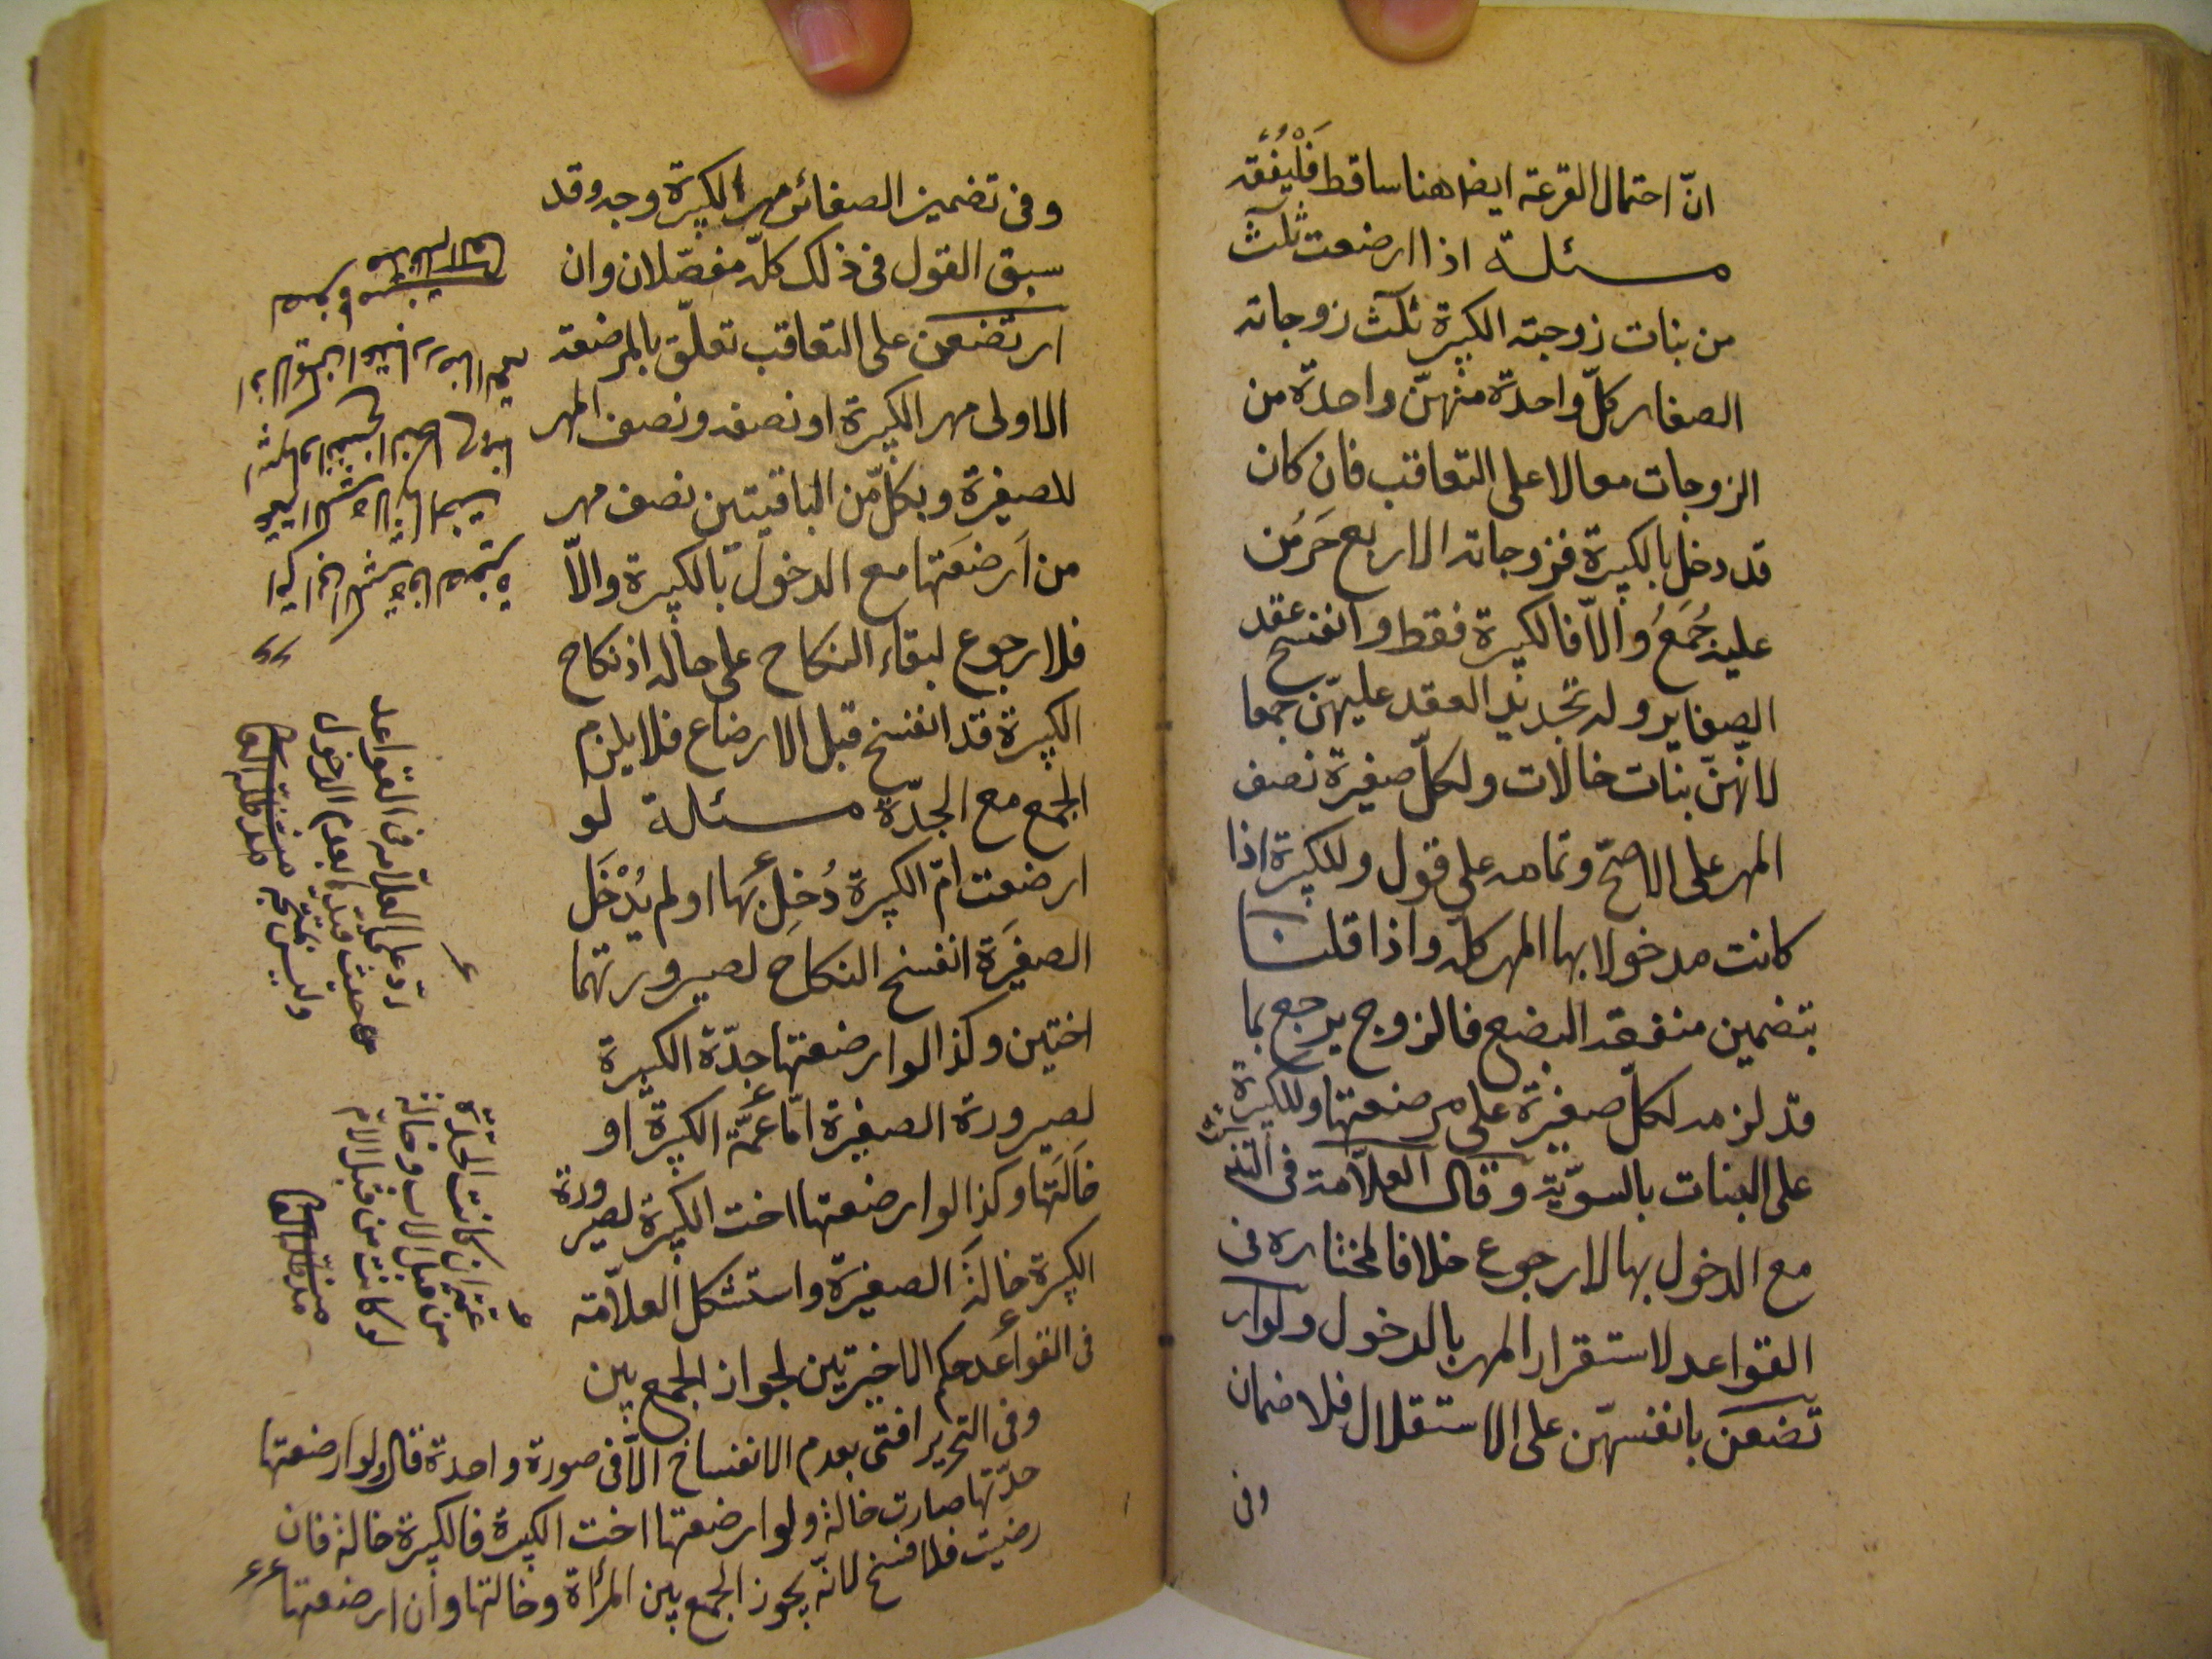 انّ احتمال القرعة ايضا هنا ساقط فَلْيُفْقَه
مسئلة اذا ارضعت ثلٰث
من بنات زوجته الكبيرة ثلٰث زوجاته
الصغار كلّ واحدة منهنّ واحدة من
الزوجات معا لا على التعاقب فان كان
قد دخل بالكبيرة فزوجاته الاربع حَرُمْن
عليه جُمَعُ والّا فالكبيرة فقط وانفسخ عقد
الصغاير وله تجديد العقد عليهنّ جمعا
لانّهنّ بنات خالات ولكلّ صغيرة نصف
المهر على الاصحّ وتمامه على قول وللكبيرة اذا
كانت مدخولا بها المهر كله واذا قلنا
بتضمين منفعة البضع فالزوج يرجع بما
قد لزمه لكلّ صغيرة على مرضعتها وللكبيرة
على البنات بالسويّة وقال العلّامة فى
مع الدخول بها لا رجوع خلافا لمختاره فى
القواعد لاستقرار المهر بالدخول ولو ار
تضعن بانفسهنّ على الاستقلال فلا ضمان
وفى
وفى تضمين الصغائر مهر الكبيرة وجه وقد
سبق القول فى ذلك كلّه مفصّلا وان
ارتضعن على التعاقب تعلّق بالمرضعة
الاولى مهر الكبيرة او نصفه ونصف المهر
للصغيرة وبكلّ من الباقيتين نصف مهر
من اَرضعَتها مع الدخول بالكبيرة والّا
فلا رجوع لبقاء النكاح على حاله اذ نكاح
الكبيرة قد انفسخ قبل الارضاع فلا يلزم
الجمع مع الجدّة مسئلة لو
ارضعت امّ الكبيرة دُخِل بها او لم يُدْخَل
الصغيرَة انفسخ النكاح لصيرورتهما
اختين وكذا لو ارضعتها جدّة الكبيرة
لصيرورة الصغيرة امّا عمّة الكبيرة او
خَالَتها وكذا لو ارضعتها اخت الكبيرة لصيرورة
الكبيرة خالةَ الصغيرة واستشكل العلّامة
فى القواعد حكم الاخيرتين لجواز الجمع بين
وفى التحرير افتى بعدم الانفساخ الّا فى صورة واحدة قال ولو ارضعتها
جدّتها صارت خالة ولو ارضعتها اخت الكبيرة فالكبيرة خالة فان
رضيت فلا فسخ لانّه يجوز الجمع بين المرأة وخالتها وان ارضعتها
ردّ على العلّامة فى القواعد
حيث قيّد بعدم الدخول
وليس بمتّجه منه
مد ظله العالى
عمّة ان كانت الجدّة
من قبل الاب وخالة
لو كانت من قبل الامّ
منه
مد ظله العالى